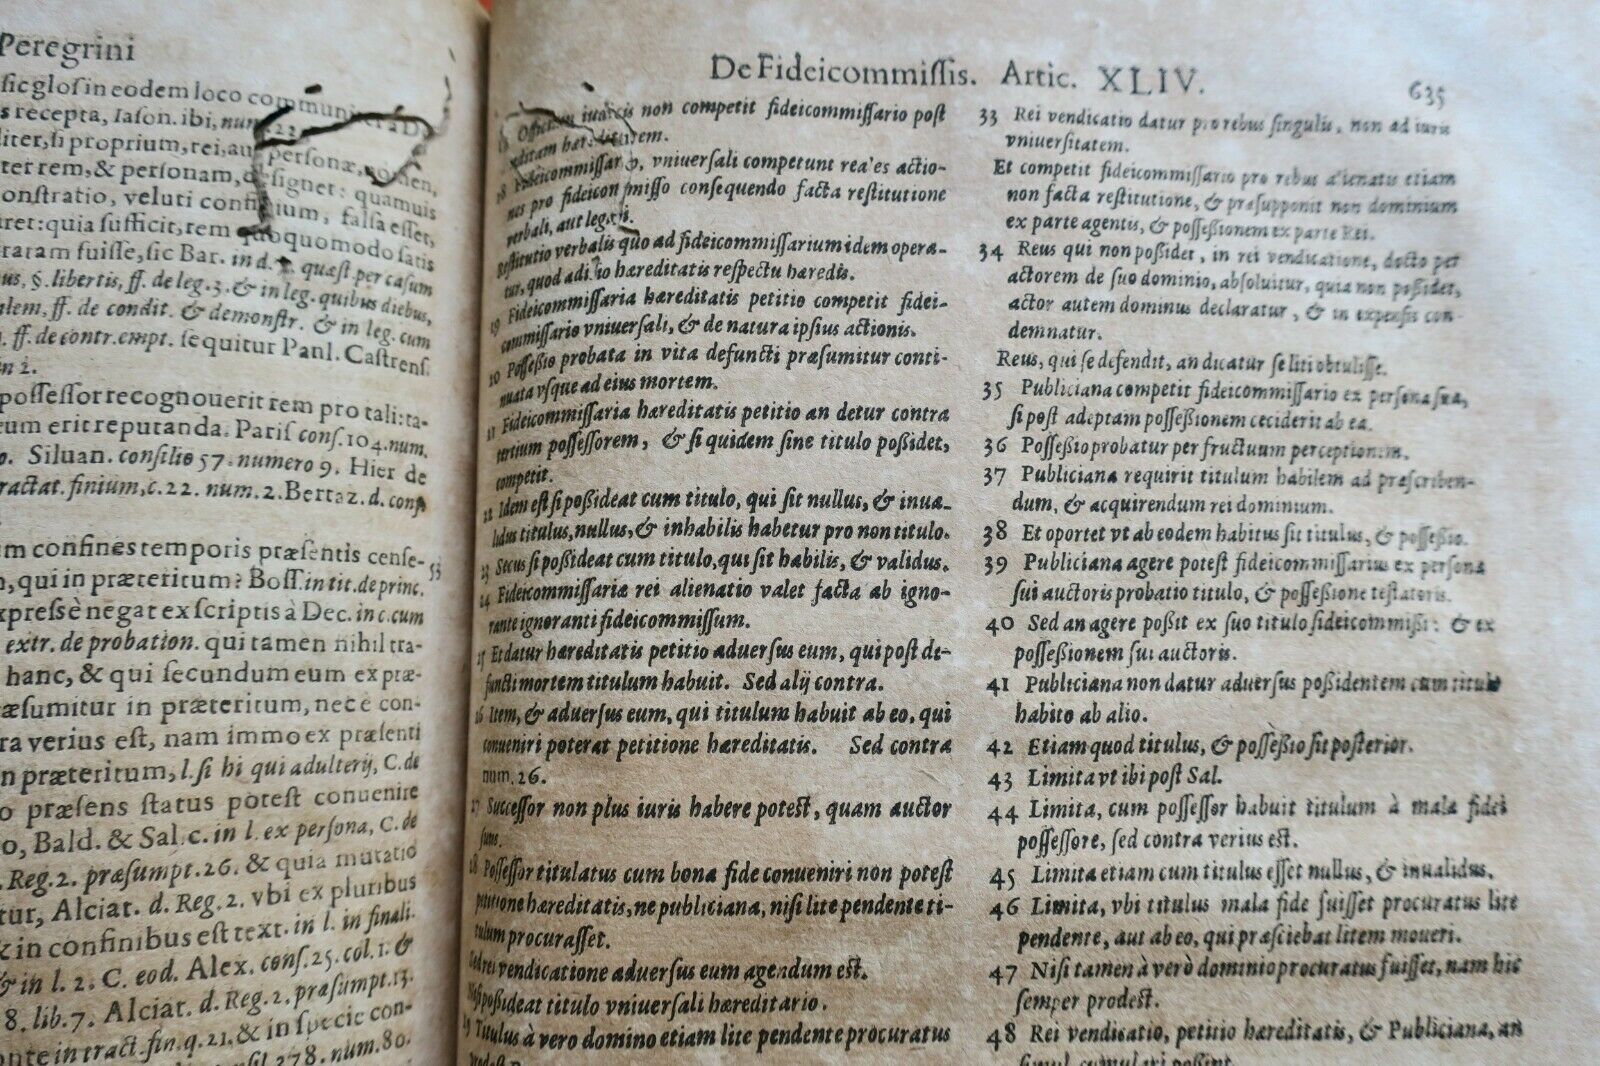 Peregrini
sic glos in eodem loco communiter
s recepta, Iason. ibi, num. 22
liter, si proprium, rei, aut personæ, nomen,
ter rem, & personam, designet: quamuis
onstratio, veluti confinium, falsa esset,
ret: quia sufficit, rem quoquomodo satis
raram fuisse, sic Bar. in d. quæst. per casum
us, §. libertis, ff. de leg. 3. & in leg. quibus diebus,
lem, ff. de condit. & demonstr. & in leg. cum
. ff. de contr. empt. sequitur Paul. Castrens.
n 2.
possessor recognouerit rem pro tali: ta-
eum erit reputanda. Paris cons. 104. num.
o. Siluan. consilio 57. numero 9. Hier de
ractat. finium, c. 22. num. 2. Bertaz. d. cons
um confines temporis præsentis cense- 53
, qui in præteritum? Boss. in tit. de princ.
xpressè negat ex scriptis à Dec. in c. cum
extr. de probation. qui tamen nihil tra-
hanc, & qui secundum eum ex præ-
æsumitur in præteritum, nec è con-
ra verius est, nam immo ex præsenti
n præteritum, l. si hi qui adulterij, C. de
o præsens status potest conuenire
o, Bald. & Sal c. in l. ex persona, C. de
. Reg. 2. præsumpt. 26. & quia mutatio
tur, Alciat. d. Reg. 2. vbi ex pluribus
& in confinibus est text. in l. in finali.
& in l. 2. C. eod. Alex. cons. 25. col. 1. &
8. lib. 7. Alciat. d. Reg. 2. præsumpt. 13.
onte in tract. fin. q. 21. & in specie con-
sil 278. num. 80.
De Fideicommissis. Artic. XLIV. 635
Officium iudicis non competit fideicommissario post
editam hæreditatem.
18 Fideicommissario, vniuersali competunt reales actio-
nes pro fideicommisso consequendo facta restitutione
verbali, aut legalis.
Restitutio verbalis quo ad fideicommissarium idem opera-
tur, quod aditio hæreditatis respectu hæredis.
19 Fideicommissaria hæreditatis petitio competit fidei-
commissario vniuersali, & de natura ipsius actionis.
20 Possessio probata in vita defuncti præsumitur conti-
nuata vsque ad eius mortem.
21 Fideicommissaria hæreditatis petitio an detur contra
tertium possessorem, & si quidem sine titulo possidet,
competit.
22 Idem est si possideat cum titulo, qui sit nullus, & inua-
lidus titulus, nullus, & inhabilis habetur pro non titulo.
23 Secus si possideat cum titulo, qui sit habilis, & validus.
24 Fideicommissariæ rei alienatio valet facta ab igno-
rante ignoranti fideicommissum.
25 Et datur hæreditatis petitio aduersus eum, qui post de-
functi mortem titulum habuit. Sed alij contra.
26 Item, & aduersus eum, qui titulum habuit ab eo, qui
conueniri poterat petitione hæreditatis. Sed contra
num. 26.
27 Successor non plus iuris habere potest, quam auctor
suus.
28 Possessor titulatus cum bona fide conueniri non potest
petitione hæreditatis, ne publiciana, nisi lite pendente ti-
tulum procurasset.
Sed rei vendicatione aduersus eum agendum est.
Nisi possideat titulo vniuersali hæreditario.
29 Titulus à vero domino etiam lite pendente procuratus
33 Rei vendicatio datur pro rebus singulis, non ad iuris
vniuersitatem.
Et competit fideicommissario pro rebus alienatis etiam
non facta restitutione, & præsupponit non dominium
ex parte agentis, & possessionem ex parte Rei.
34 Reus qui non possidet, in rei vendicatione, docto per
actorem de suo dominio, absoluitur, quia non possidet,
actor autem dominus declaratur, & in expensis con-
demnatur.
Reus, qui se defendit, an dicatur se liti obtulisse.
35 Publiciana competit fideicommissario ex persona sua,
si post adeptam possessionem ceciderit ab ea.
36 Possessio probatur per fructuum perceptionem.
37 Publiciana requirit titulum habilem ad præscriben-
dum, & acquirendum rei dominium.
38 Et oportet vt ab eodem habitus sit titulus, & possessio.
39 Publiciana agere potest fideicommissarius ex persona
sui auctoris probatio titulo, & possessione testatoris.
40 Sed an agere possit ex suo titulo fideicommissi: & ex
possessionem sui auctoris.
41 Publiciana non datur aduersus possidentem cum titulo
habito ab alio.
42 Etiam quod titulus, & possessio sit posterior.
43 Limita vt ibi post Sal.
44 Limita, cum possessor habuit titulum à mala fidei
possessore, sed contra verius est.
45 Limita etiam cum titulus esset nullus, & inualidus.
46 Limita, vbi titulus mala fide fuisset procuratus lite
pendente, aut ab eo, qui præsciebat litem moueri.
47 Nisi tamen à verò domino procuratus fuisset, nam hic
semper prodest.
48 Rei vendicatio, petitio hæreditatis, & Publiciana, an
simul cumulari possint.